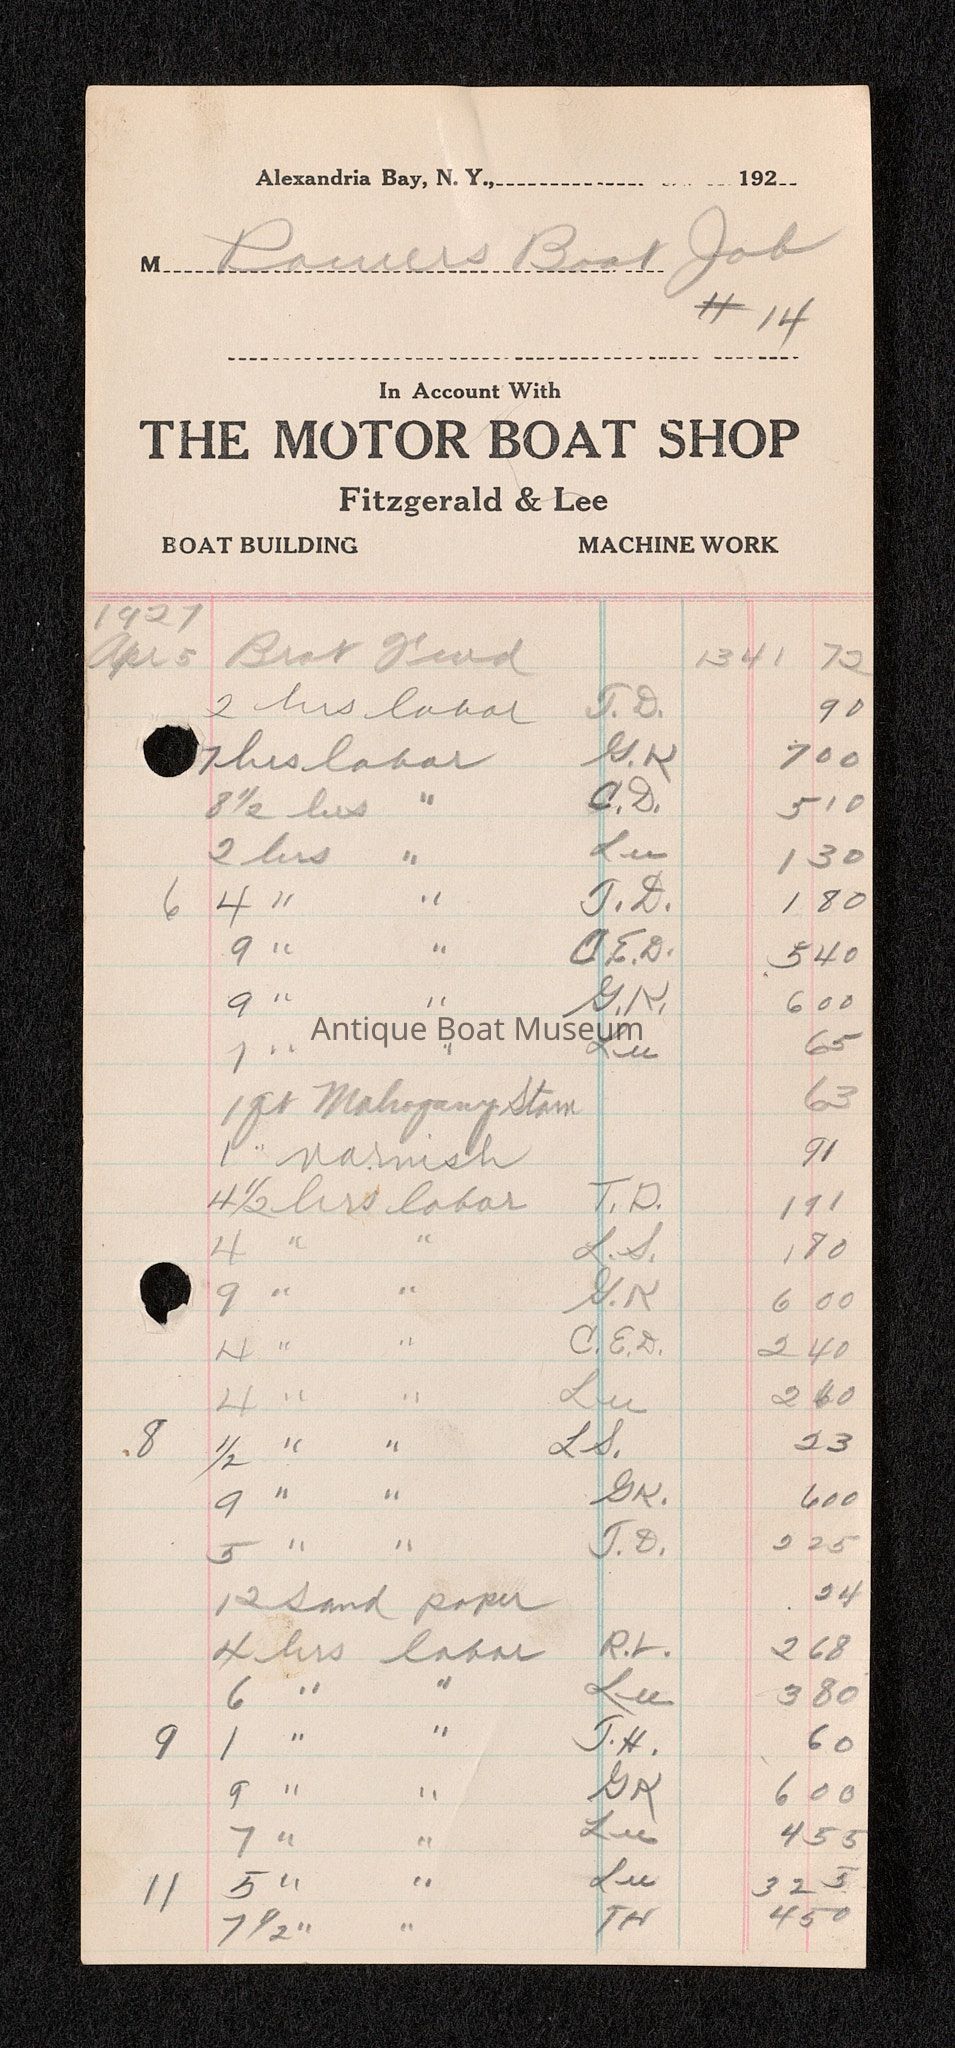 Alexandria Bay, N. Y., 192
M Pamers Boat Job
# 14
In Account With
THE MOTOR BOAT SHOP
Fitzgerald & Lee
BOAT BUILDING MACHINE WORK
1927
Apr 5 Brot F'wd 1341 72
2 hrs labor T.D. 90
7 hrs labor G.K 700
8 1/2 hrs " C.D. 510
2 hrs " Lee 130
6 4 " " T.D. 180
9 " " C.E.D. 540
9 " " G.K. 600
Antique Boat Museum
1 " " Lee 65
1 qt Mahogany Stain 63
1 " varnish 91
4 1/2 hrs labor T.D. 191
4 " " L.S. 180
9 " " G.K 600
4 " " C.E.D. 240
4 " " Lee 260
8 1/2 " " L.S. 23
9 " " GK. 600
5 " " T.D. 225
12 Sand paper 24
4 hrs labor R.L. 268
6 " " Lee 380
9 1 " " T.H. 60
9 " " GK 600
7 " " Lee 455
11 5 " " Lee 325
7 1/2 " " TH 450